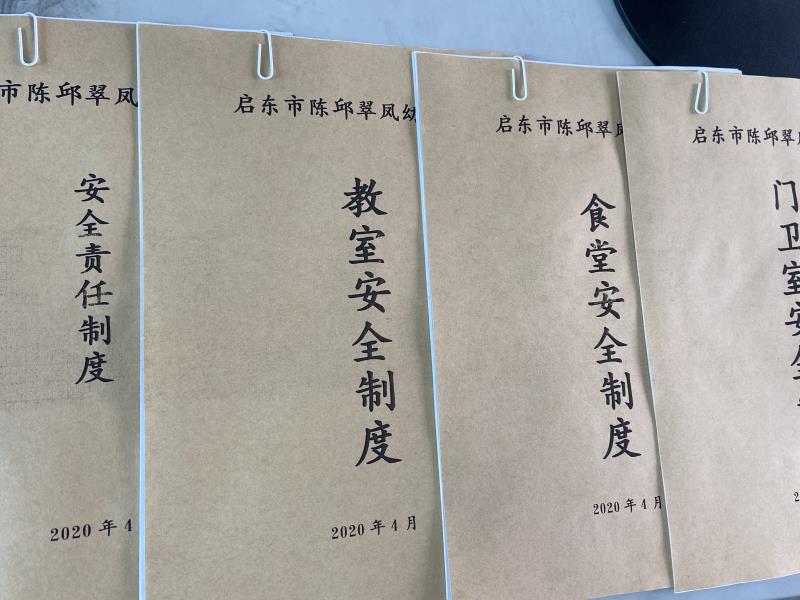 市陈邱翠凤
安全责任制度
2020年4
启东市陈邱翠凤幼
教室安全制度
2020年4月
启东市陈邱翠凤
食堂安全制度
2020年4月
启东市陈邱翠
门卫室安全
2